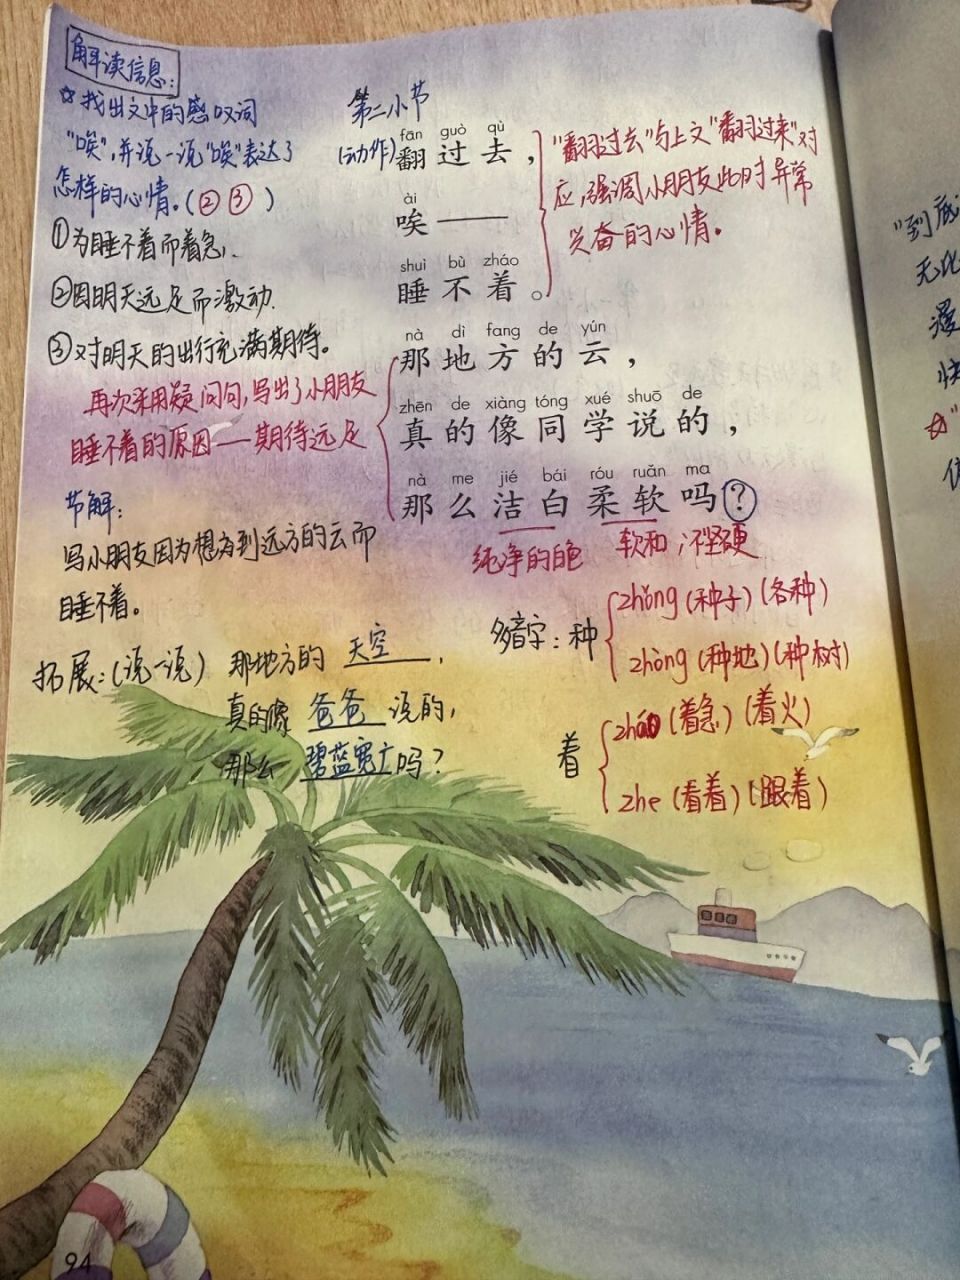 解读信息:
☆找出文中的感叹词
"唉",并说一说"唉"表达了
怎样的心情。(②③)
①为睡不着而着急.
②因明天远足而激动.
③对明天的出行充满期待。
第二小节
(动作)
fān guò qù
翻过去，
ài
唉——
shuì bù zháo
睡不着。
"翻过去"与上文"翻过来"对
应,强调小朋友此时异常
兴奋的心情。
nà dì fang de yún
那地方的云，
zhēn de xiàng tóng xué shuō de
真的像同学说的，
nà me jié bái róu ruǎn ma
那么洁白柔软吗?
再次采用疑问句,写出了小朋友
睡不着的原因——期待远足
纯净的白色
软和;不坚硬
节解:
写小朋友因为想看到远方的云而
睡不着。
多音字:种
zhǒng(种子)(各种)
zhòng(种地)(种树)
着
zháo(着急)(着火)
zhe(看着)(跟着)
拓展:(说一说) 那地方的 天空,
真的像 爸爸 说的,
那么 碧蓝宽广吗?
94
"到底
无比
漫
快
☆"